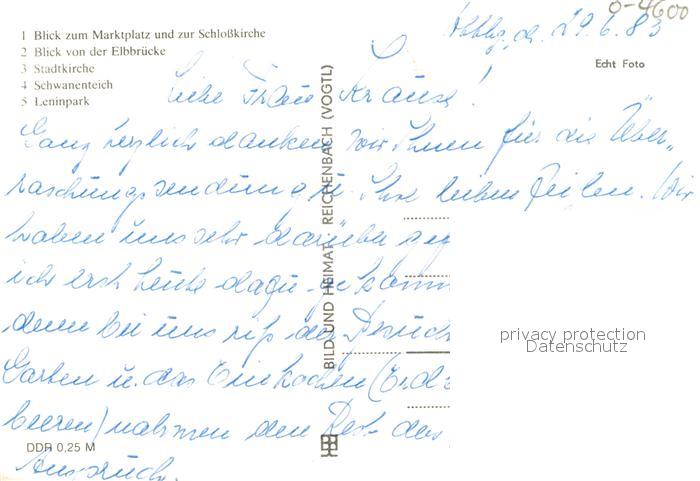 0-4600
Wttbg, d. 29.6.83
1 Blick zum Marktplatz und zur Schloßkirche
2 Blick von der Elbbrücke
3 Stadtkirche
4 Schwanenteich
5 Leninpark
Echt Foto
Liebe Frau Krause!
Ganz herzlich danken wir Ihnen für die Über-
raschungssendung u. Ihre lieben Zeilen. Wir
haben uns sehr darüber
ich erst heute dazu
denn bei uns riß der Besuch
Garten u. das Einkochen (Erd-
beeren) nahmen den Rest des
Anspruch.
BILD UND HEIMAT · REICHENBACH (VOGTL)
privacy protection
Datenschutz
DDR 0,25 M